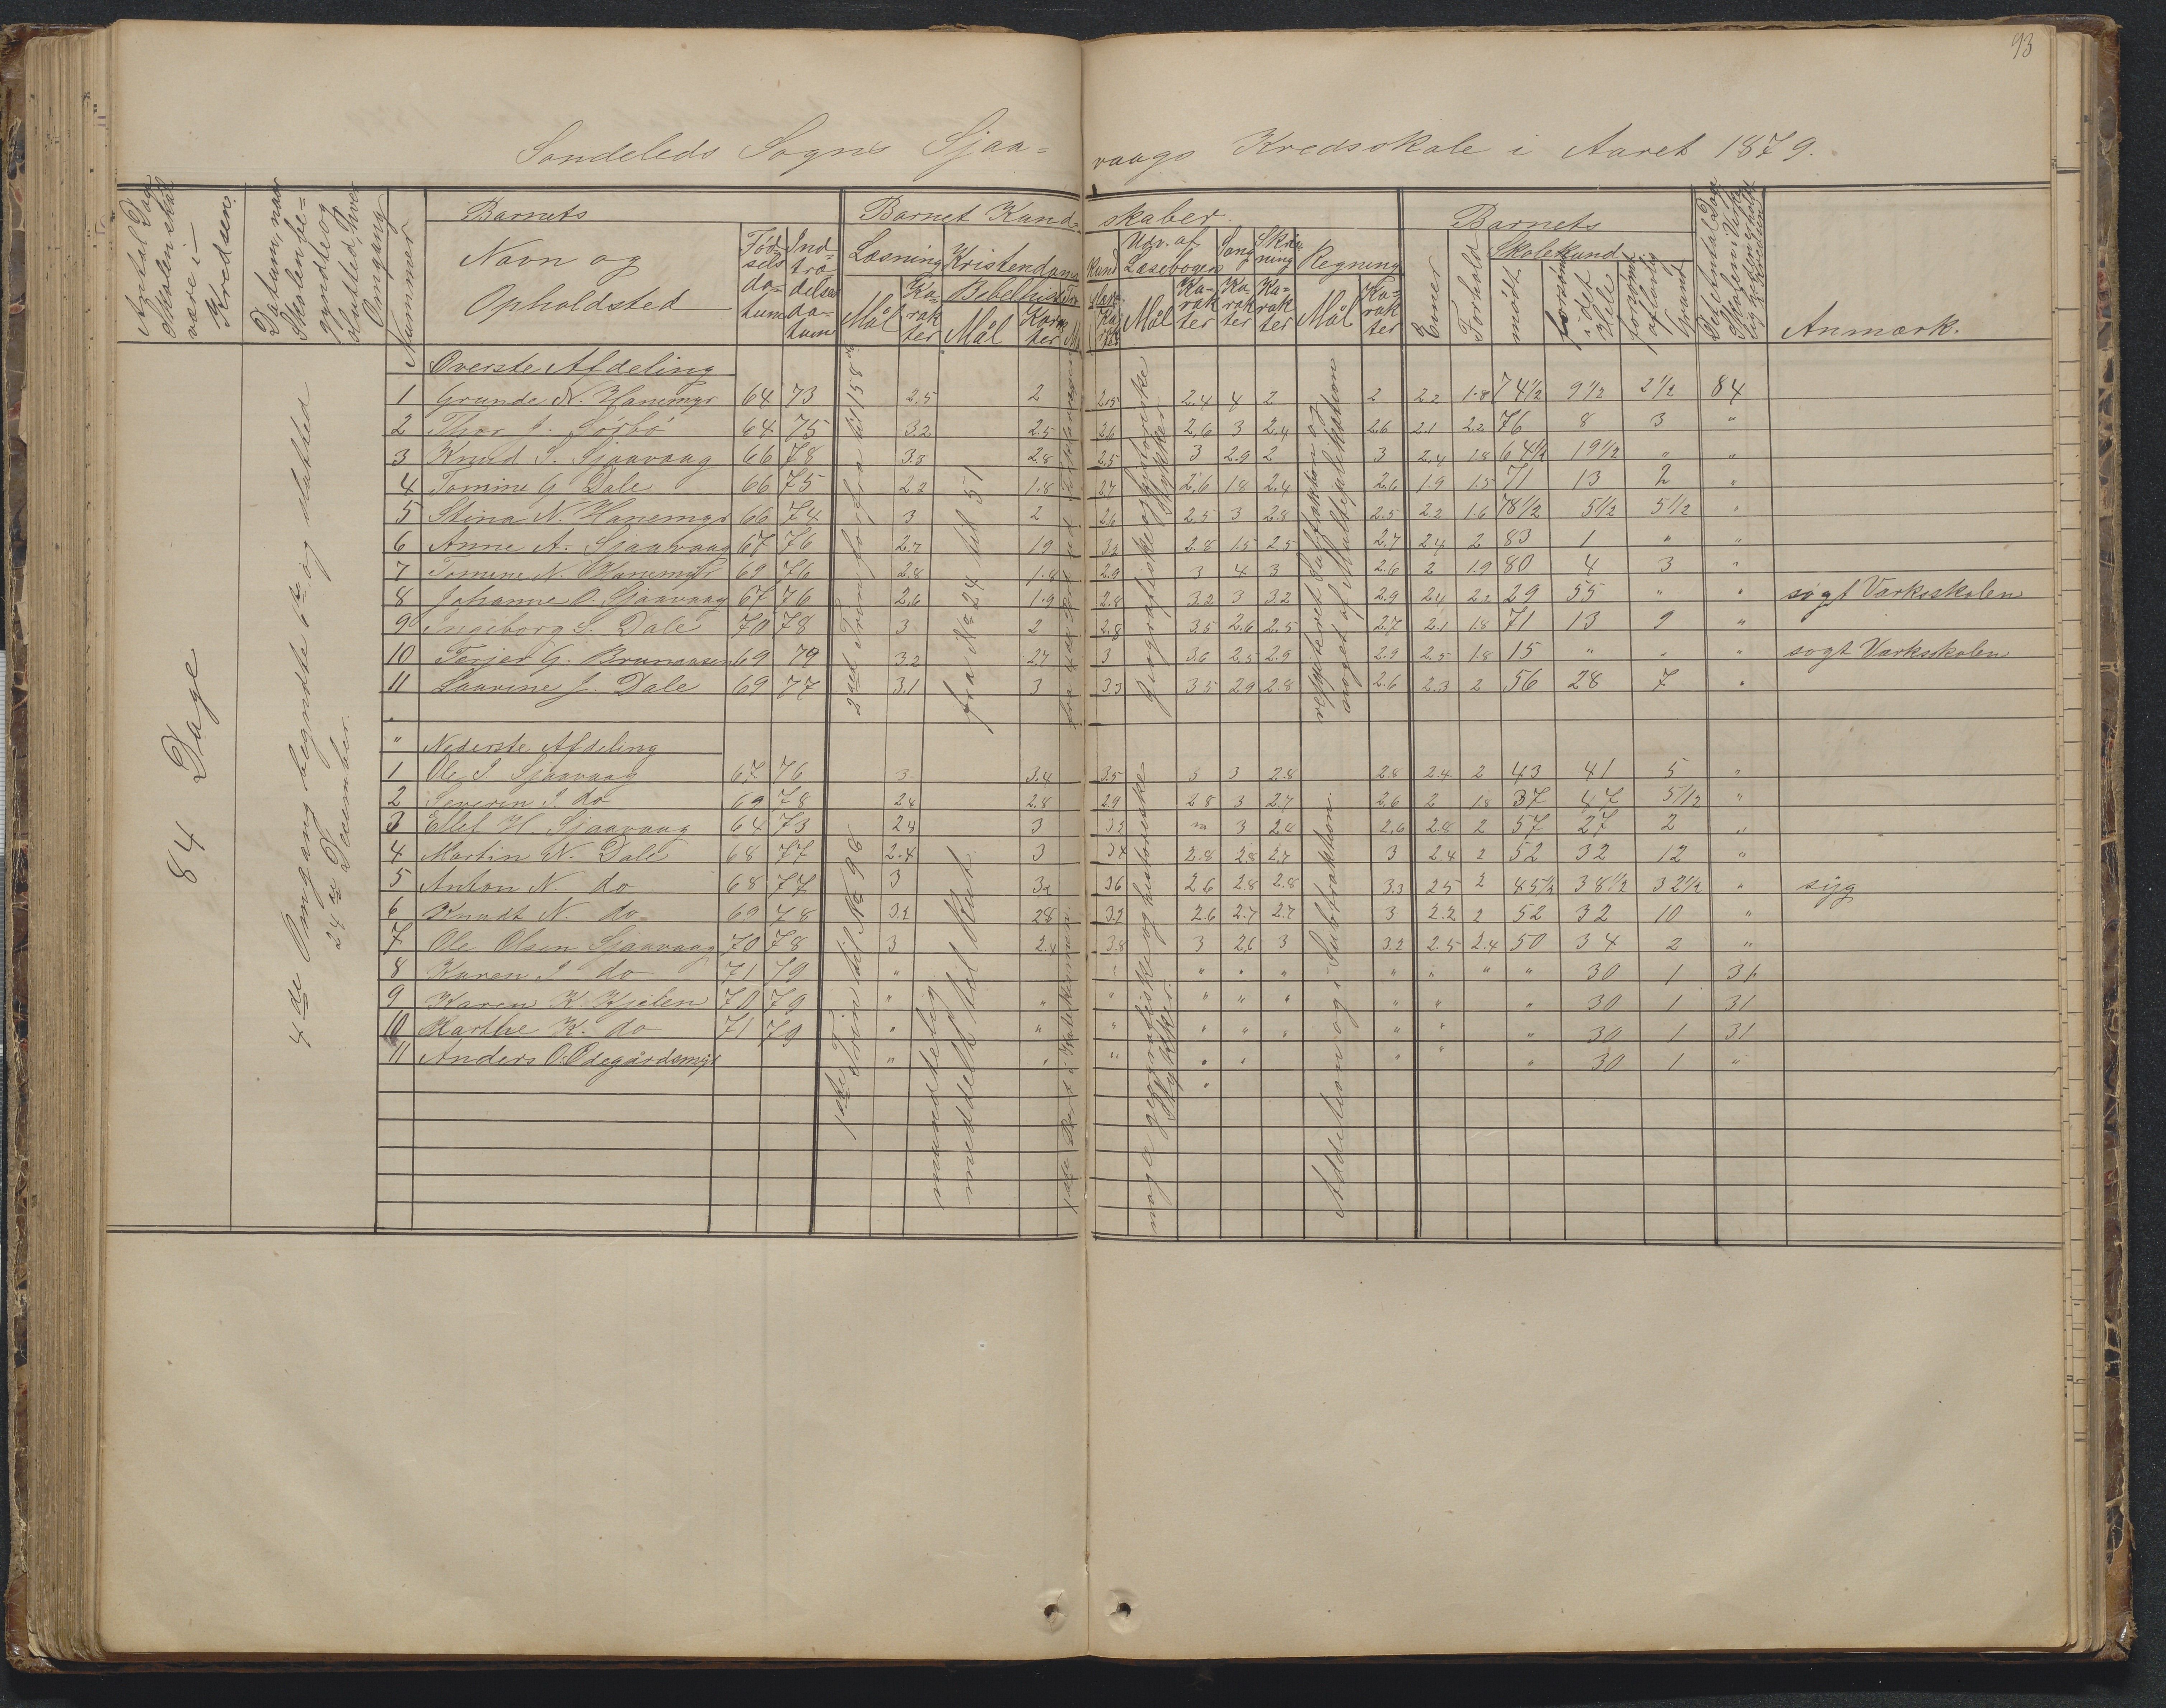 93
Sondeleds Sogns Sjaa=
vaags Kredsskole i Aaret 1879.
Antal Dage Skolen skal være i Kredsen.
Datum, naar Skolen be=gyndte og slutted, hver Omgang
Nummer
Barnets
Navn og Opholdsted
Fød-sels da-tum
Ind-træ-delses da-tum
Barnet Kund-
skaber.
Læsning
Mål
Ka-rak-ter
Kristendoms
kund
Bibelhist
Mål
Udv. af Læsebogen
Mål
Ka-rak-ter
Sang
Ka-rak-ter
Skriv-ning
Ka=rak-ter
Regning
Mål
Ka-rak-ter
Barnets
Evner
Forhold
Skolesund
mødt
forsømt i det Hele
forsømt af lovlig Grund
Det Antal Dage Skolen i Virke-
Anmærk.
84 Dage
4de Omgang begyndte 1ste og slutted
24de December.
Øverste Afdeling
1 Grunde N. Hanemyr 64 73 2.5 2 2.5 2.4 4 2 2 2.2 1.8 74½ 9½ 2½ 84
2 Thor J. Sørbø 64 75 3.2 2.5 2.6 2.6 3 2.4 2.6 2.1 2.2 76 8 3 "
3 Knud S. Sjaavaag 66 78 3.3 2.8 2.5 3 2.9 2 3 2.4 1.8 64½ 19½ " "
4 Tomine G. Dale 66 75 2.2 1.8 2.7 2.6 1.8 2.4 2.6 1.9 1.5 71 13 2 "
5 Stina N. Hanemyr 66 74 3 2 2.6 2.5 3 2.8 2.5 2.2 1.6 78½ 5½ 5½ "
6 Anne A. Sjaavaag 67 76 2.7 1.9 3.2 2.8 1.5 2.5 2.7 2.4 2 83 1 " "
7 Tomine N. Hanemyr 69 76 2.8 1.8 2.9 3 4 3 2.6 2 1.9 80 4 3 "
8 Johanne O. Sjaavaag 67 76 2.6 1.9 2.8 3.2 3 3.2 2.9 2.4 2.2 29 55 " " søgt Værksskolen
9 Ingeborg S. Dale 70 78 3 2 2.8 3.5 2.6 2.5 2.7 2.1 1.8 71 13 9 "
10 Terjer G. Brunaasen 69 79 3.2 2.7 3 3.6 2.5 2.9 2.9 2.5 1.8 15 " " " søgt Værksskolen
11 Laurine J. Dale 69 77 3.1 3 3.3 3.5 2.9 2.8 2.6 2.3 2 56 28 7 "
2det Trin forfra til 158de
fra No 24 til 51
geografiske og historiske Stykker
repeteret Subtraktion og noget af Multiplikation
" Nederste Afdeling
1 Ole I Sjaavaag 67 76 3 3.4 3.5 3 3 2.8 2.8 2.4 2 43 41 5 "
2 Severin I. do 69 78 2.4 2.8 2.9 2.8 3 2.7 2.6 2 1.8 37 47 5½ "
3 Ellef H. Sjaavaag 64 73 2.8 3 3.2 m 3 2.8 2.6 2.8 2 57 27 2 "
4 Martin N. Dale 68 77 2.4 3 3.4 2.8 2.8 2.7 3 2.4 2 52 32 12 "
5 Anton N. do 68 77 3 3.2 3.6 2.6 2.8 2.8 3.3 2.5 2 45½ 38½ 32½ " syg
6 Knudt N. do 69 78 3.2 2.8 3.2 2.6 2.7 2.7 3 2.2 2 52 32 10 "
7 Ole Olsen Sjaavaag 70 78 3 2.4 3.8 3 2.6 3 3.2 2.5 2.4 50 34 2 "
8 Karen I do 71 79 " " " " " " " " " 30 1 31
9 Karen K. Kjelen 70 79 " " " " " " " " " 30 1 31
10 Karthe K. do 71 79 " " " " " " " " " 30 1 31
11 Anders O. Ødegårdsmyr " " " " " " " " 30 1 "
1ste Trin til No 98
mundtelig meddelt til Kyst
1ste Part i Katekismen
noge geografiske og historiske Stykker.
Addition og i Subtraktion.